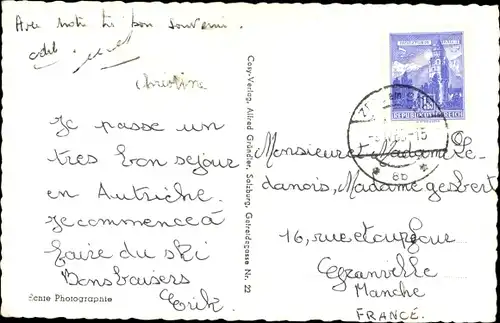 Avec notre bon souvenir.
Christine
Je passe un
tres bon sejour
en Autriche.
Je commence à
faire du ski
Bons baisers
Erik.
Echte Photographie
Cosy-Verlag, Alfred Gründler, Salzburg, Getreidegasse Nr. 22
REPUBLIK ÖSTERREICH
Monsieur et Madame Le-
danois, Madame Gesbert
16, rue
Granville
Manche
FRANCE.